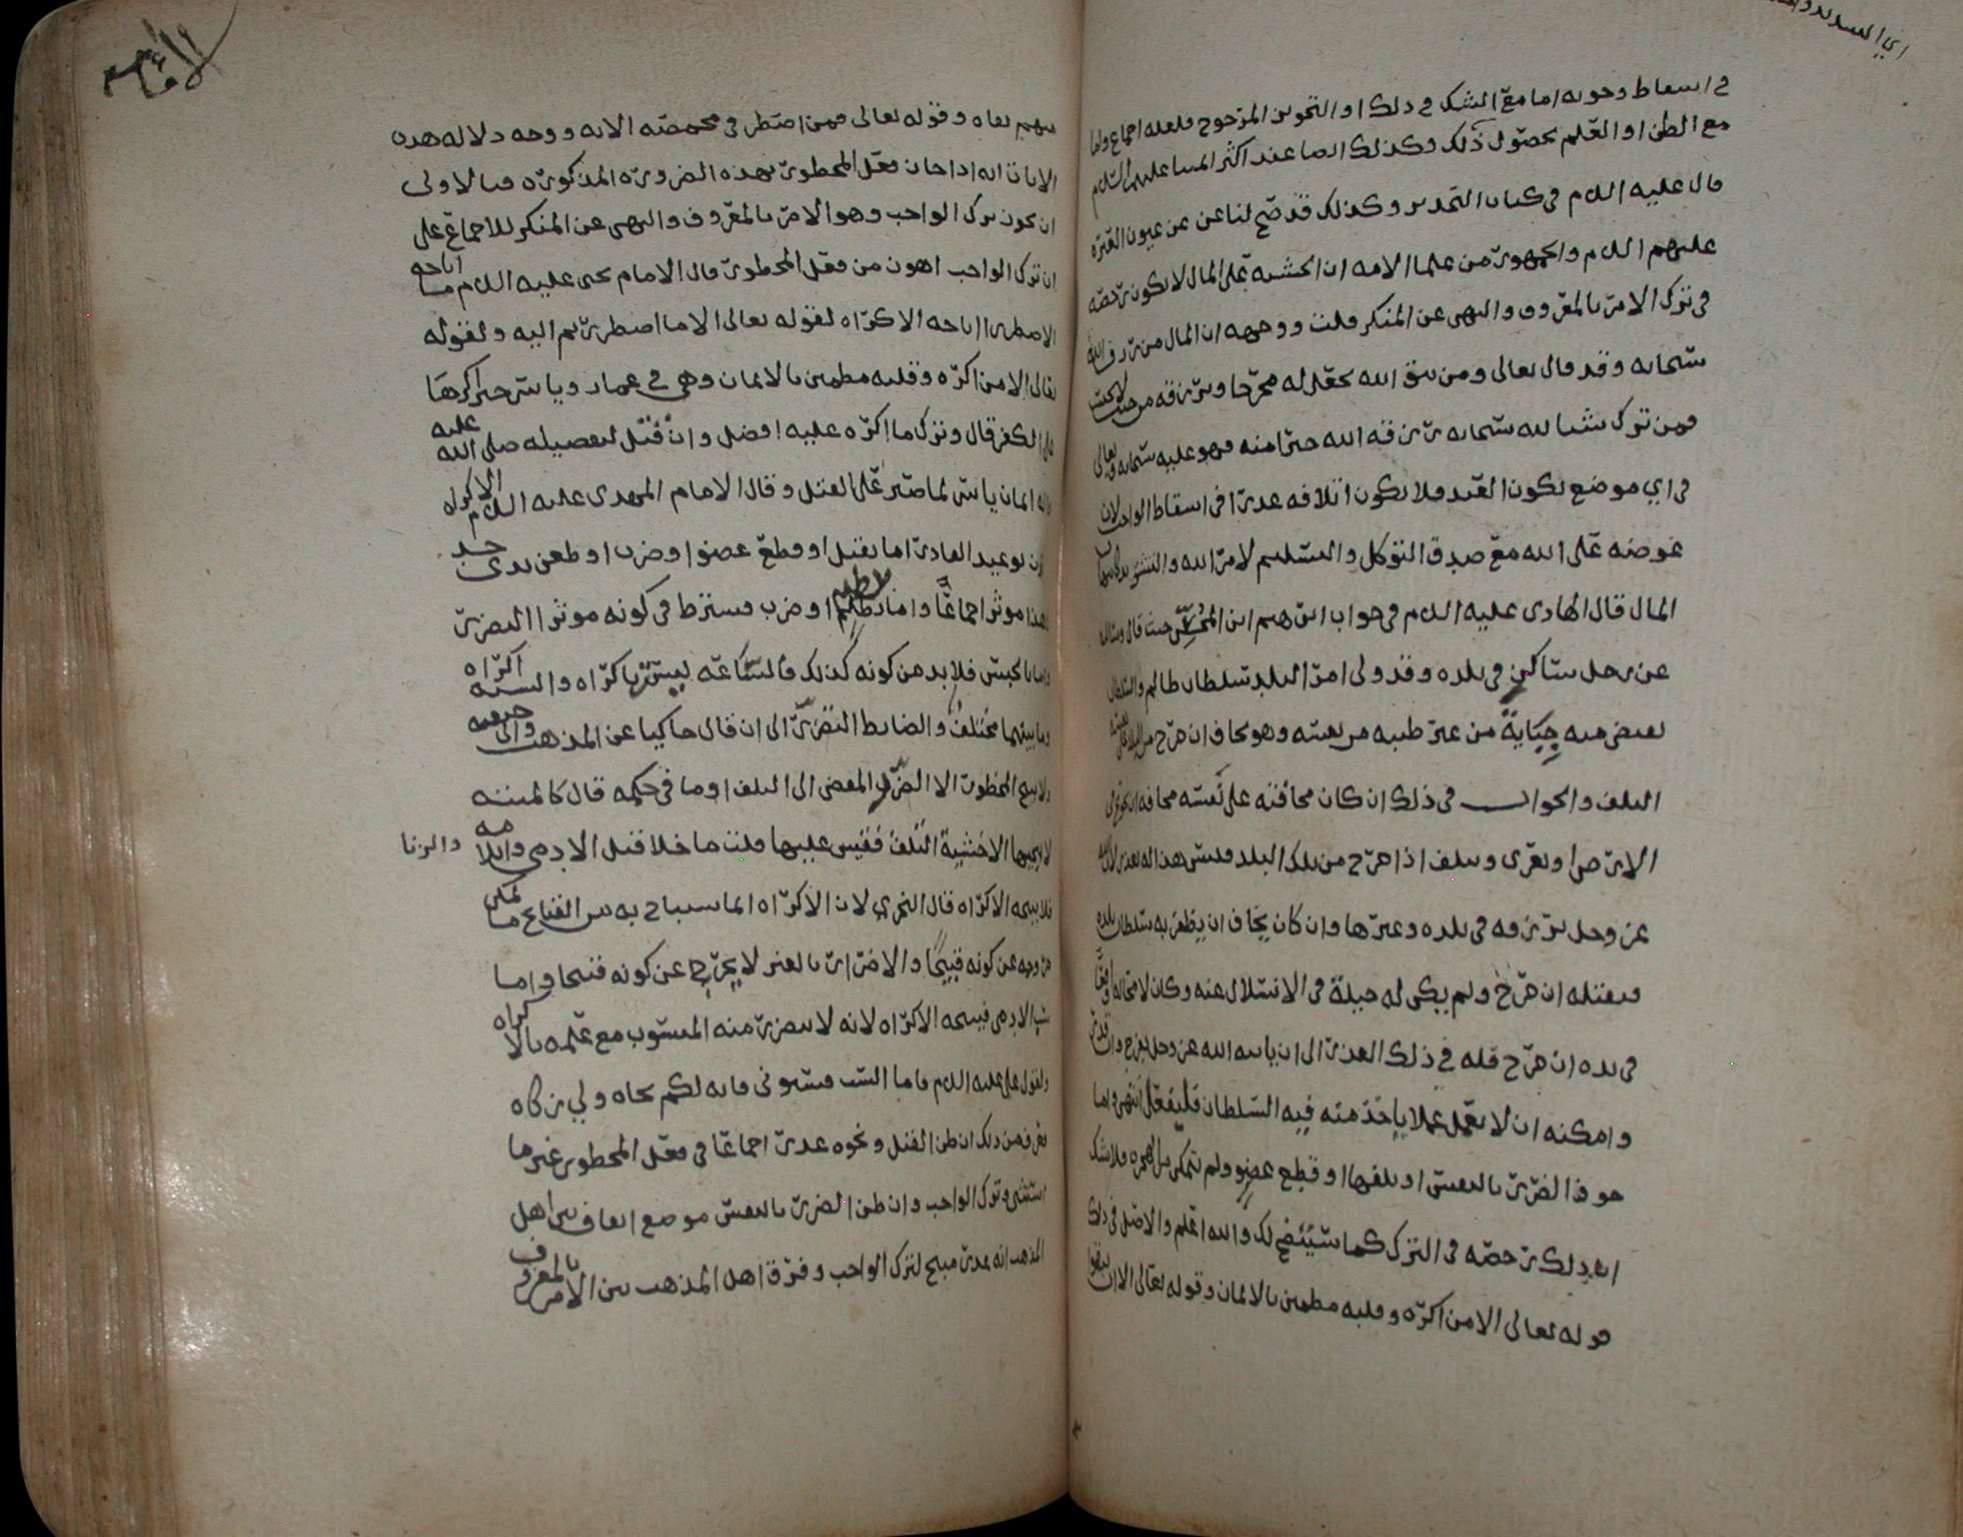 في اسقاط وجوبه اما مع الشك في ذلك او التجويز المرجوح فلعله اجماع واما
مع الظن او العلم بحصول ذلك وكذلك ايضا عند اكثر ائمتنا عليهم السلام
قال عليه السلم في كتاب وكذلك قد صح لنا عن عن عيون العترة
عليهم السلم والجمهور من علما الامه ان الخشية على المال لا تكون رخصه
في ترك الامر بالمعروف والنهي عن المنكر قلت ووجهه ان المال من رزق الله
سبحانه وقد قال تعالى ومن يتق الله يجعل له مخرجا ويرزقه من حيث لا يحتسب
فمن ترك شيا لله سبحانه رزقه الله خيرا منه فهو عليه سبحانه وتعالى
في اي موضع يكون العبد فلا يكون اتلافه عذرا في اسقاط الواجب لان
عوضه على الله مع صدق التوكل والتسليم لامر الله
المال قال الهادي عليه السلم في جواب ابن المحسن حيث قال وسالت
عن رجل ساكن في بلده وقد ولي امر البلد سلطان ظالم والسلطان
يقبض منه جباية من غير طيبه من نفسه وهو يخاف ان خرج من البلد على نفسه
التلف والجواب في ذلك ان كان مخافته على نفسه مخافه ان
الارض او يعرى ويتلف اذا خرج من تلك البلد فليس هذا له بعذر لان الله
عز وجل يرزقه في بلده وغيرها وان كان يخاف ان يظفر به سلطان بلده
فيقتله ان خرج ولم يكن له حيلة في الانسلال عنه وكان لا محالة واقعا
في يده ان خرج فله في ذلك العذر الى ان ياتيه الله عز وجل بفرج وان قدر
وامكنه ان لا يعمل عملا ياخذ منه فيه السلطان فليفعل انتهى واما
خوف الضرر بالنفس او تلفها او قطع عضو ولم يتمكن من الهجره فلا شك
ان ذلك رخصه في الترك كما سيتضح لك والله اعلم والاصل في ذلك
قوله تعالى الا من اكره وقلبه مطمين بالايمان وقوله تعالى الا ان تتقوا
منهم تقاه وقوله تعالى فمن اضطر في مخمصه الايه ووجه دلاله هذه
الايات انه اذا جاز فعل المحظور بهذه الضروره المذكوره فبالاولى
ان يكون ترك الواجب وهو الامر بالمعروف والنهي عن المنكر للاجماع على
ان ترك الواجب اهون من فعل المحظور قال الامام يحيى عليه السلم ما اباحه
الاضطرار اباحه الاكراه لقوله تعالى الا ما اضطررتم اليه ولقوله
تعالى الا من اكره وقلبه مطمين بالايمان وهي في عمار وياسر حين اكرها
على الكفر قال وترك ما اكره عليه افضل وان قتل لتفضيله صلى الله عليه
واله ايمان ياسر لما صبر على القتل وقال الامام المهدي عليه السلم الاكراه
يكون بوعيد القادر اما بقتل او قطع عضو او ضرب او طعن بذي حد
فهذا موثر اجماعا واما بلطم لاطم او ضرب فيشترط في كونه موثرا التضرر
واما بالحبس فلا بد من كونه كذلك فالساعه ليست باكراه والسنه اكراه
وما بينهما مختلف والضابط التضرر الى ان قال حاكيا عن المذهب
ولا يبيح المحظور الا الضرر المفضي الى التلف او ما في حكمه قال كالميته
لا يبيحها الا خشية التلف فقيس عليها قلت ما خلا قتل الادمي وايلامه والزنا
فلا يبيحه الاكراه قال النجري لان الاكراه انما يستباح به من القبايح ما يمكن
خروجه عن كونه قبيحا والاضرار بالغير لا يخرج عن كونه قبيحا واما
سب الادمي فيبيحه الاكراه لانه لا يتضرر منه المسبوب مع علمه بالاكراه
ولقول علي عليه السلم فاما السب فسبوني فانه لكم نجاه ولي زكاه
فعرف من ذلك ان ظن القتل ونحوه عذر اجماعا في فعل المحظور غير ما
استثني وترك الواجب وان ظن الضرر بالنفس موضع اتفاق بين اهل
المذهب انه عذر مبيح لترك الواجب وفرق اهل المذهب بين الامر بالمعروف